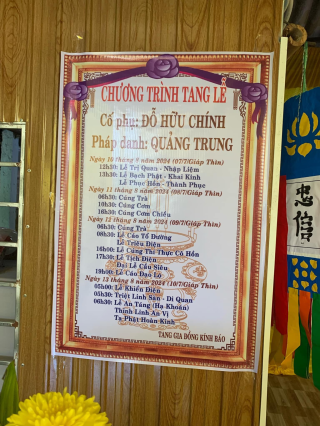 CHƯƠNG TRÌNH TANG LỄ
Cố phụ: ĐỖ HỮU CHÍNH
Pháp danh: QUẢNG TRUNG
Ngày 10 tháng 8 năm 2024 (07/7/Giáp Thìn)
12h30: Lễ Trị Quan - Nhập Liệm
13h30: Lễ Bạch Phật - Khai Kinh
Lễ Phục Hồn - Thành Phục
Ngày 11 tháng 8 năm 2024 (08/7/Giáp Thìn)
06h30: Cúng Trà
10h30: Cúng Cơm
16h30: Cúng Cơm Chiều
Ngày 12 tháng 8 năm 2024 (09/7/Giáp Thìn)
06h30: Cúng Trà
08h30: Lễ Cáo Tổ Đường
Lễ Triêu Điện
16h00: Lễ Cúng Thí Thực Cô Hồn
17h30: Lễ Tịch Điện
Đại Lễ Cầu Siêu
19h00: Lễ Cáo Đạo Lộ
Ngày 13 tháng 8 năm 2024 (10/7/Giáp Thìn)
05h00: Lễ Khiển Điện
05h30: Triệt Linh Sàn - Di Quan
06h30: Lễ An Táng (Hạ Khoán)
Thỉnh Linh An Vị
Tạ Phật Hoàn Kinh
TANG GIA ĐỒNG KÍNH BÁO
忠信